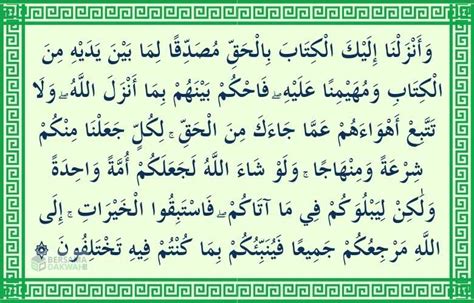 وَأَنْزَلْنَا إِلَيْكَ الْكِتَابَ بِالْحَقِّ مُصَدِّقًا لِمَا بَيْنَ يَدَيْهِ مِنَ
الْكِتَابِ وَمُهَيْمِنًا عَلَيْهِ ۖ فَاحْكُمْ بَيْنَهُمْ بِمَا أَنْزَلَ اللَّهُ ۖ وَلَا
تَتَّبِعْ أَهْوَاءَهُمْ عَمَّا جَاءَكَ مِنَ الْحَقِّ ۚ لِكُلٍّ جَعَلْنَا مِنْكُمْ
شِرْعَةً وَمِنْهَاجًا ۚ وَلَوْ شَاءَ اللَّهُ لَجَعَلَكُمْ أُمَّةً وَاحِدَةً
وَلَٰكِنْ لِيَبْلُوَكُمْ فِي مَا آتَاكُمْ ۖ فَاسْتَبِقُوا الْخَيْرَاتِ ۚ إِلَى
اللَّهِ مَرْجِعُكُمْ جَمِيعًا فَيُنَبِّئُكُمْ بِمَا كُنْتُمْ فِيهِ تَخْتَلِفُونَ
BERSAMA
DAKWAH